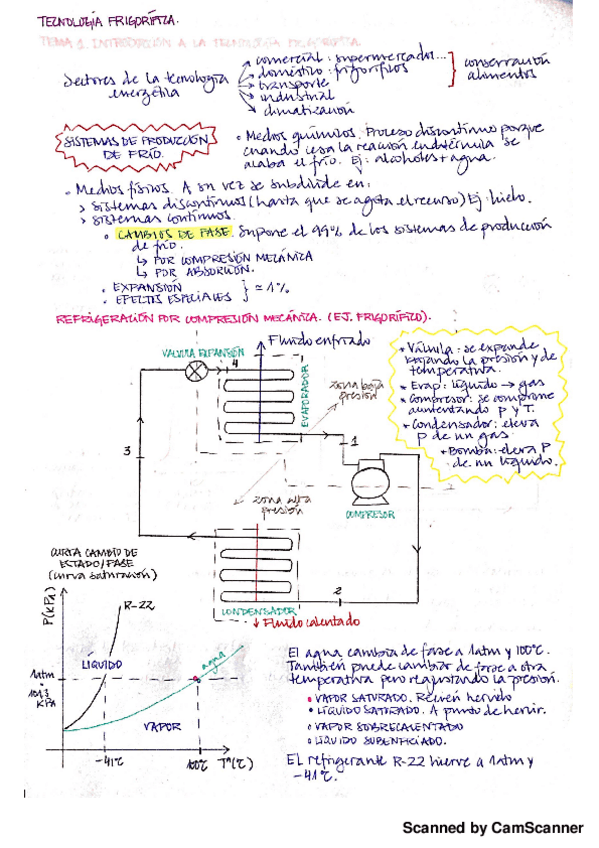 TECNOLOGÍA FRIGORÍFICA.
TEMA 1. INTRODUCCIÓN A LA TECNOLOGÍA FRIGORÍFICA.
Sectores de la tecnología
energética
comercial: supermercados...
doméstico: frigoríficos
transporte
industrial
climatización
conservación
alimentos
SISTEMAS DE PRODUCCIÓN
DE FRÍO.
• Medios químicos. Proceso discontinuo porque
cuando cesa la reacción endotérmica se
acaba el frío. Ej: alcoholes + agua.
• Medios físicos. A su vez se subdivide en:
> Sistemas discontinuos (hasta que se agota el recurso) Ej: hielo.
> Sistemas continuos.
• CAMBIOS DE FASE. Supone el 99% de los sistemas de producción
de frío.
↳ POR COMPRESIÓN MECÁNICA
↳ POR ABSORCIÓN.
• EXPANSIÓN
• EFECTOS ESPECIALES } ≃ 1%
REFRIGERACIÓN POR COMPRESIÓN MECÁNICA. (EJ. FRIGORÍFICO).
Fluido enfriado
VÁLVULA EXPANSIÓN
4
EVAPORADOR
zona baja
presión
1
3
COMPRESOR
zona alta
presión
2
CONDENSADOR
↓ Fluido calentado
• Válvula: se expande
bajando la presión y de
temperatura.
• Evap: líquido → gas
• Compresor: se comprime
aumentando P y T.
• Condensador: eleva
P de un gas.
• Bomba: eleva P
de un líquido.
CURVA CAMBIO DE
ESTADO/FASE
(curva saturación)
P(KPa)
R-22
LÍQUIDO
agua
1atm
101,3
KPa
VAPOR
-41ºC
100ºC
Tª(ºC)
El agua cambia de fase a 1atm y 100ºC.
También puede cambiar de fase a otra
temperatura pero reajustando la presión.
• VAPOR SATURADO. Recién hervido
• LÍQUIDO SATURADO. A punto de hervir.
○ VAPOR SOBRECALENTADO
○ LÍQUIDO SUBENFRIADO.
El refrigerante R-22 hierve a 1atm y
-41ºC.
Scanned by CamScanner